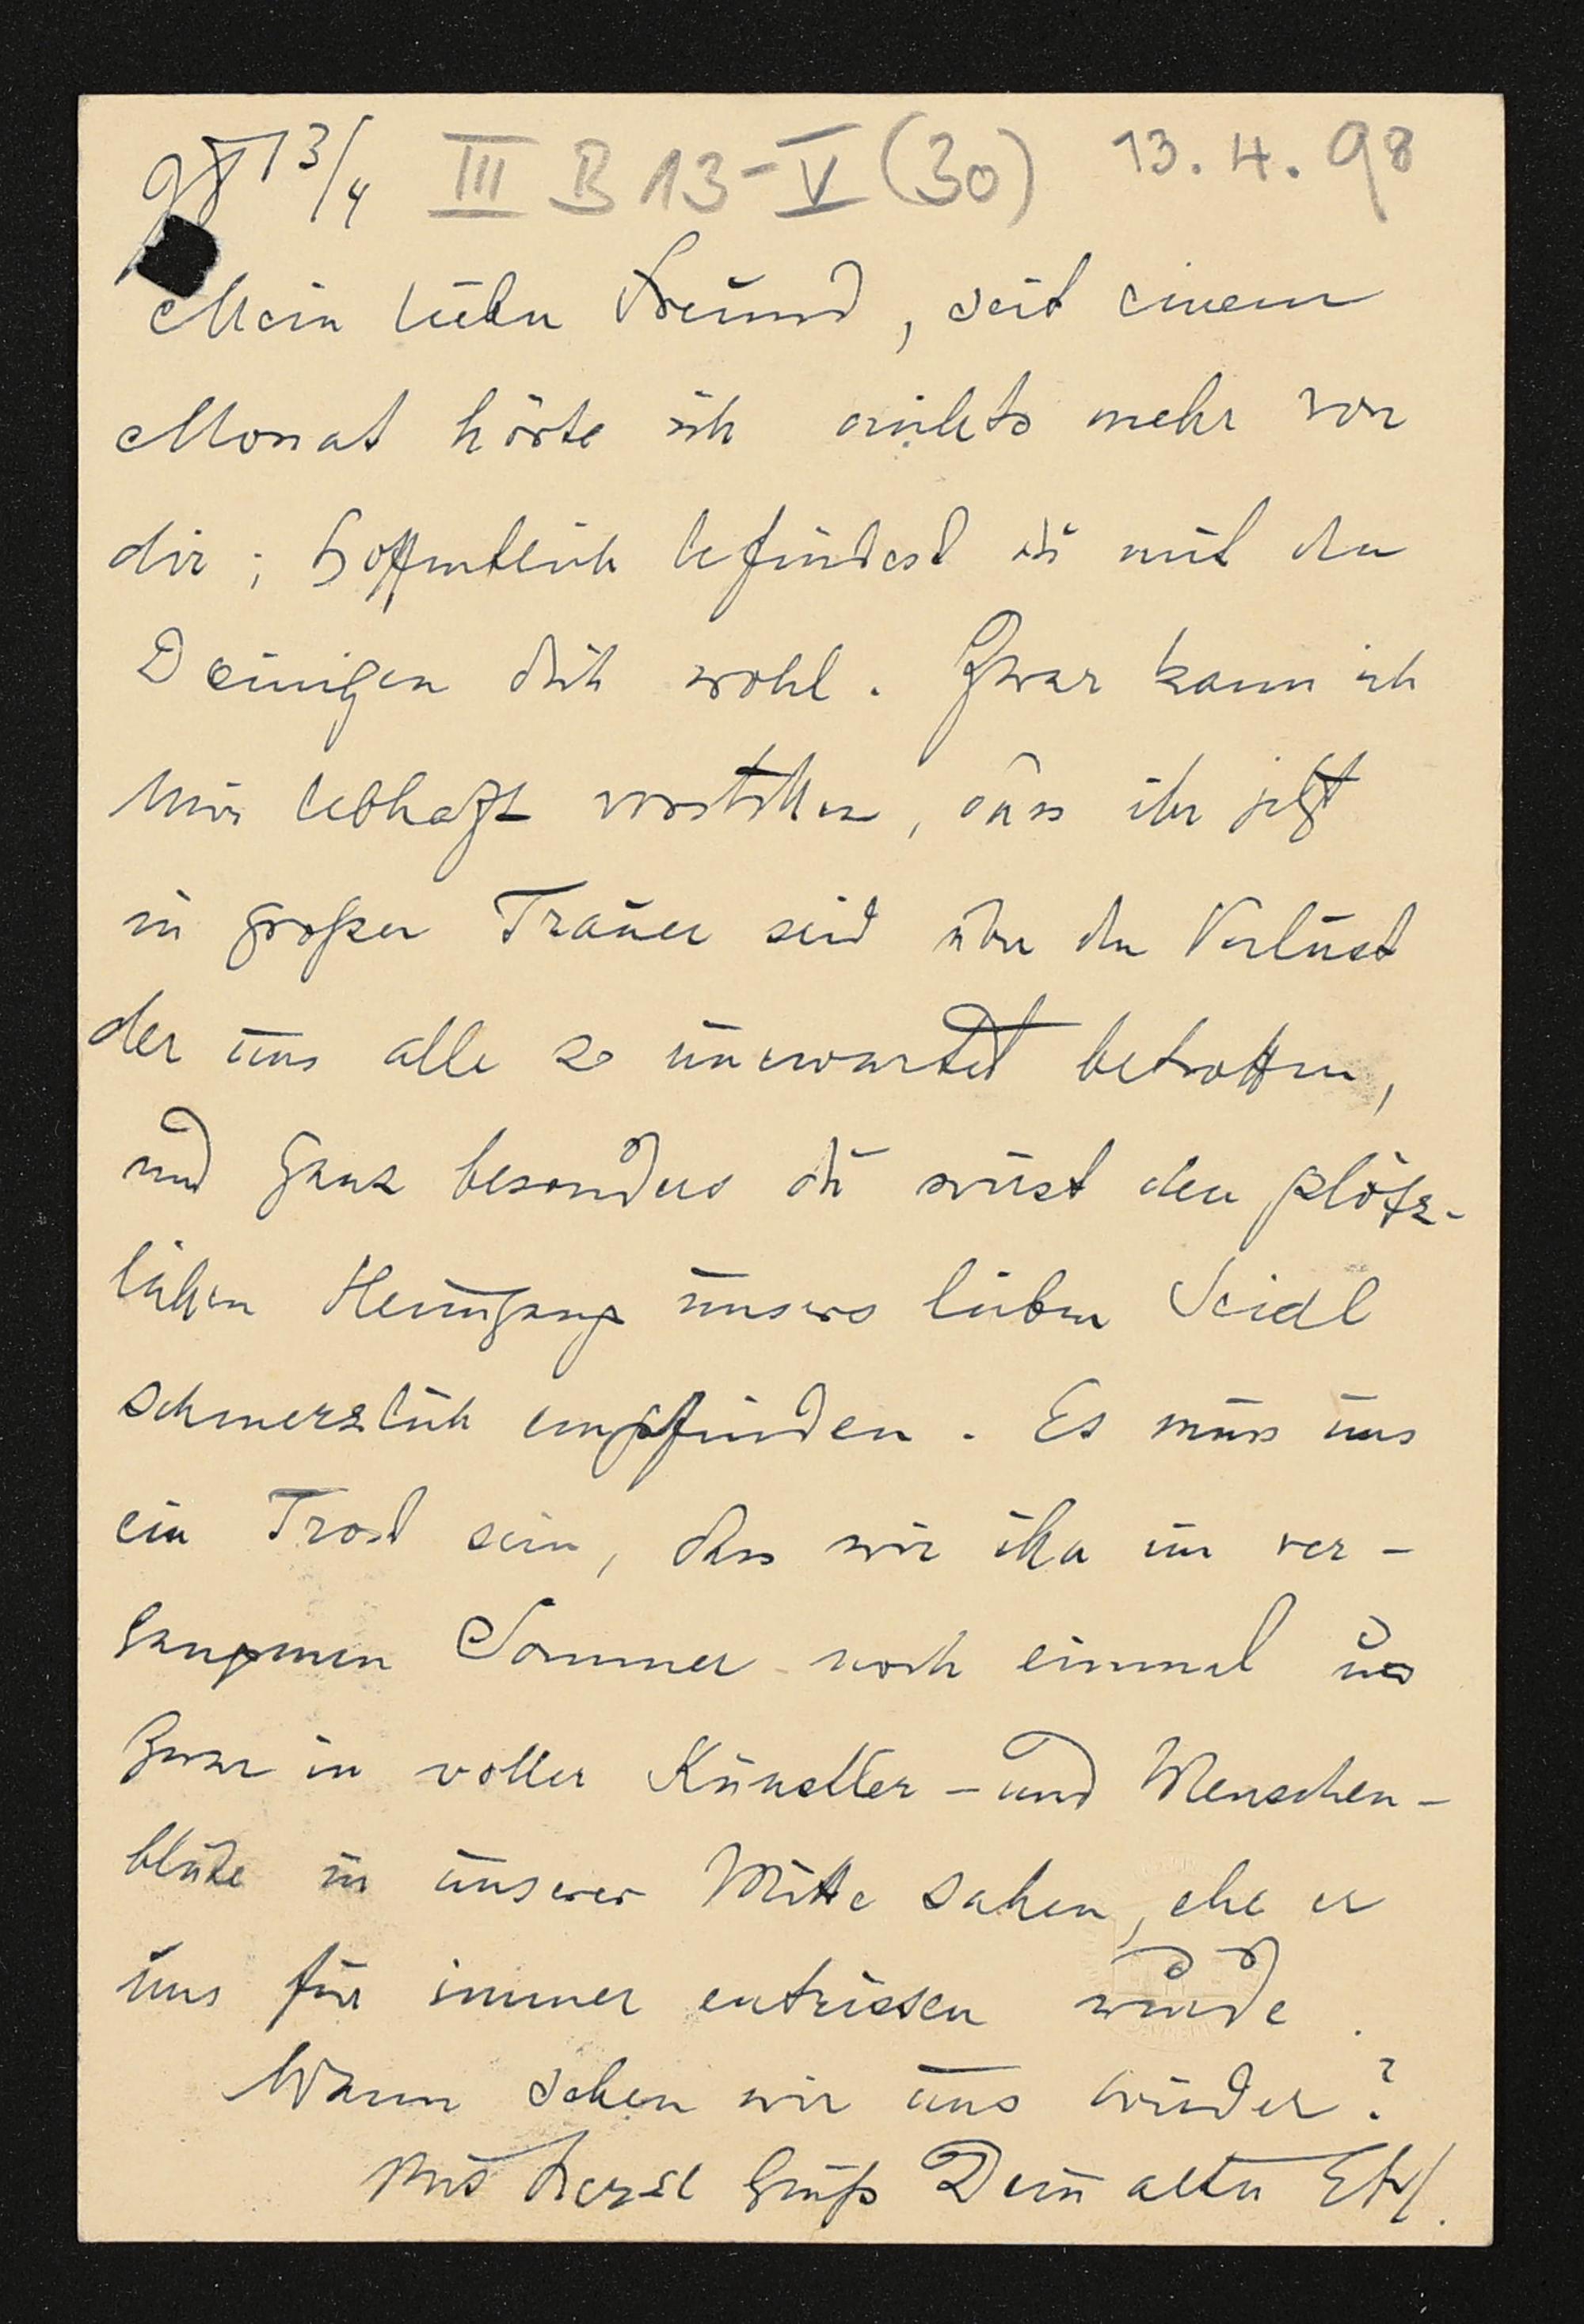 98 13/4 III B 13-V (30) 13. 4. 98
Mein lieber Freund, seit einem
Monat hörte ich nichts mehr von
dir; hoffentlich befindest du mit den
Deinigen dich wohl. Zwar kann ich
mir lebhaft vorstellen, dass ihr jetzt
in großer Trauer seid über den Verlust
der uns alle so unerwartet betroffen,
und ganz besonders du wirst den plötz-
lichen Heimgang unsers lieben Seidl
schmerzlich empfinden. Es muss uns
ein Trost sein, dass wir ihn im ver-
gangenen Sommer noch einmal und
zwar in voller Künstler- und Menschen-
blüte in unserer Mitte sahen, ehe er
uns für immer entrissen wurde.
Wann sehen wir uns wieder?
Mit herzl Gruß Dein alter